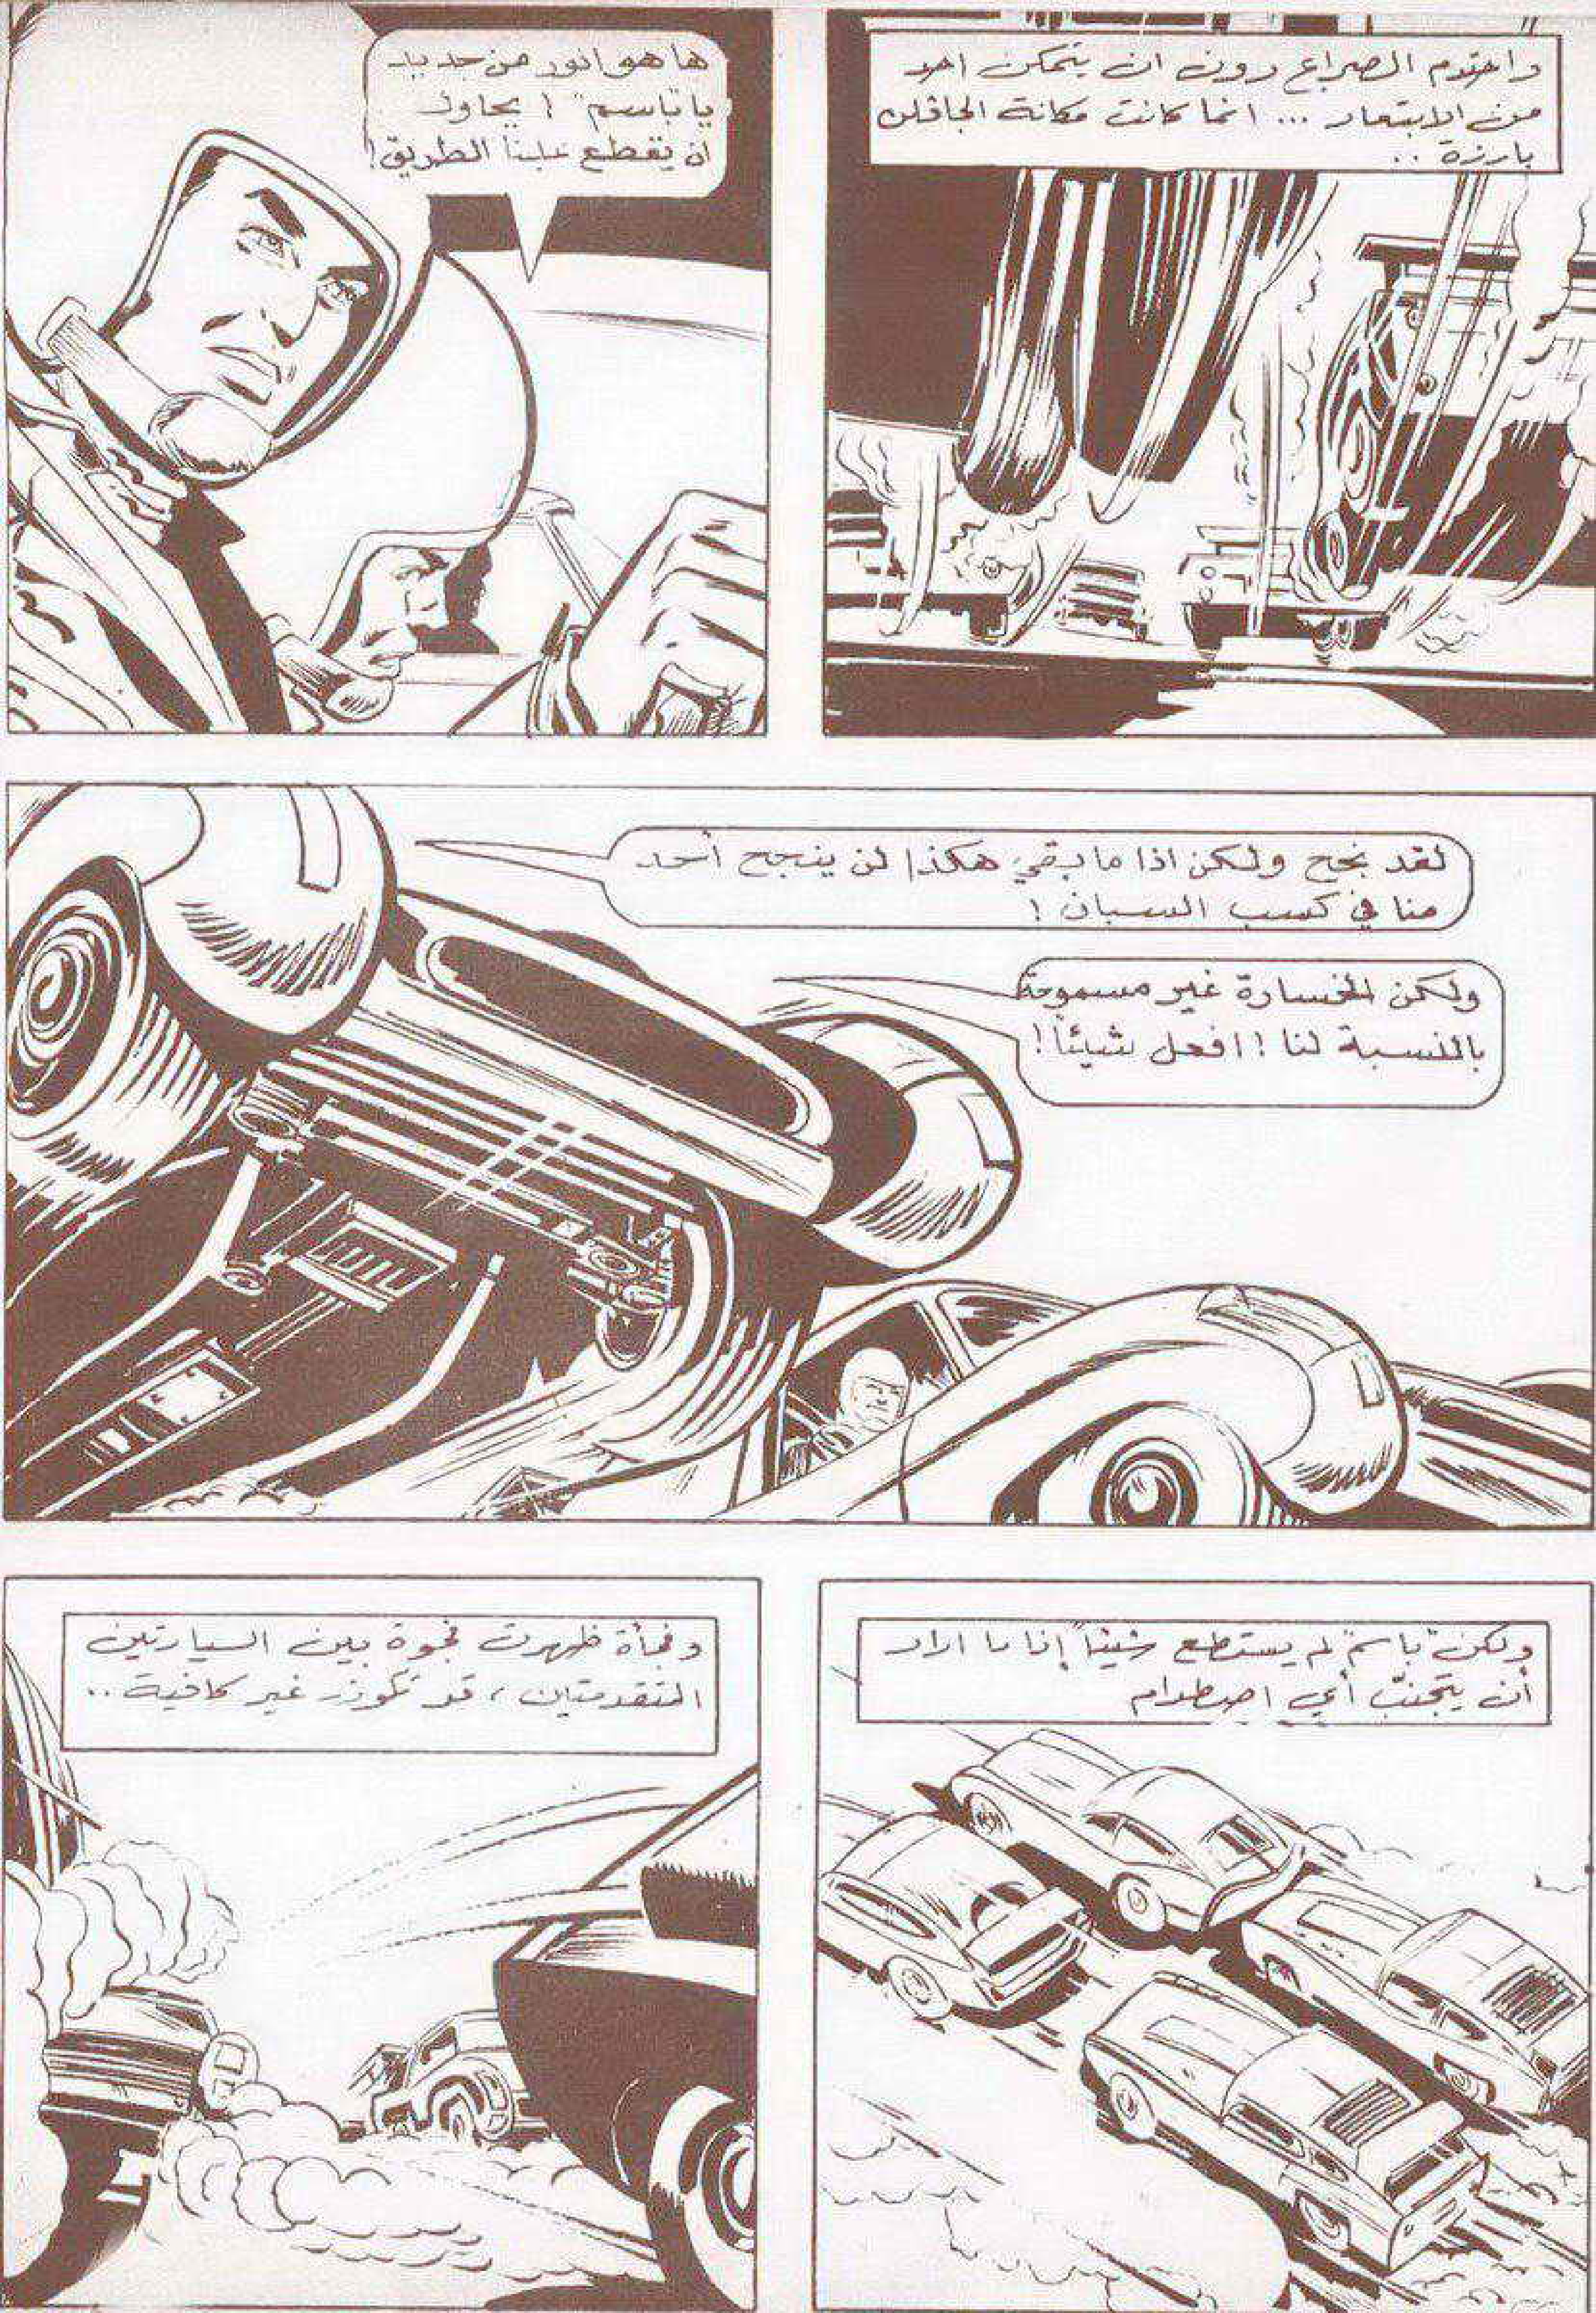 واحتدم الصراع دون ان يتمكن احد
من الابتعاد ... انما كانت مكانة الجاڤلن
بارزة ..
ها هو انور من جديد
يا "باسم" ! يحاول
ان يقطع علينا الطريق!
لقد نجح ولكن اذا ما بقي هكذا لن ينجح أحد
منا في كسب السباق !
ولكن الخسارة غير مسموحة
بالنسبة لنا ! افعل شيئاً !
ولكن "باسم" لم يستطع شيئاً إذا ما اراد
أن يتجنّب أي اصطدام
وفجأة ظهرت فجوة بين السيارتين
المتقدمتين ، قد تكون غير كافية ..